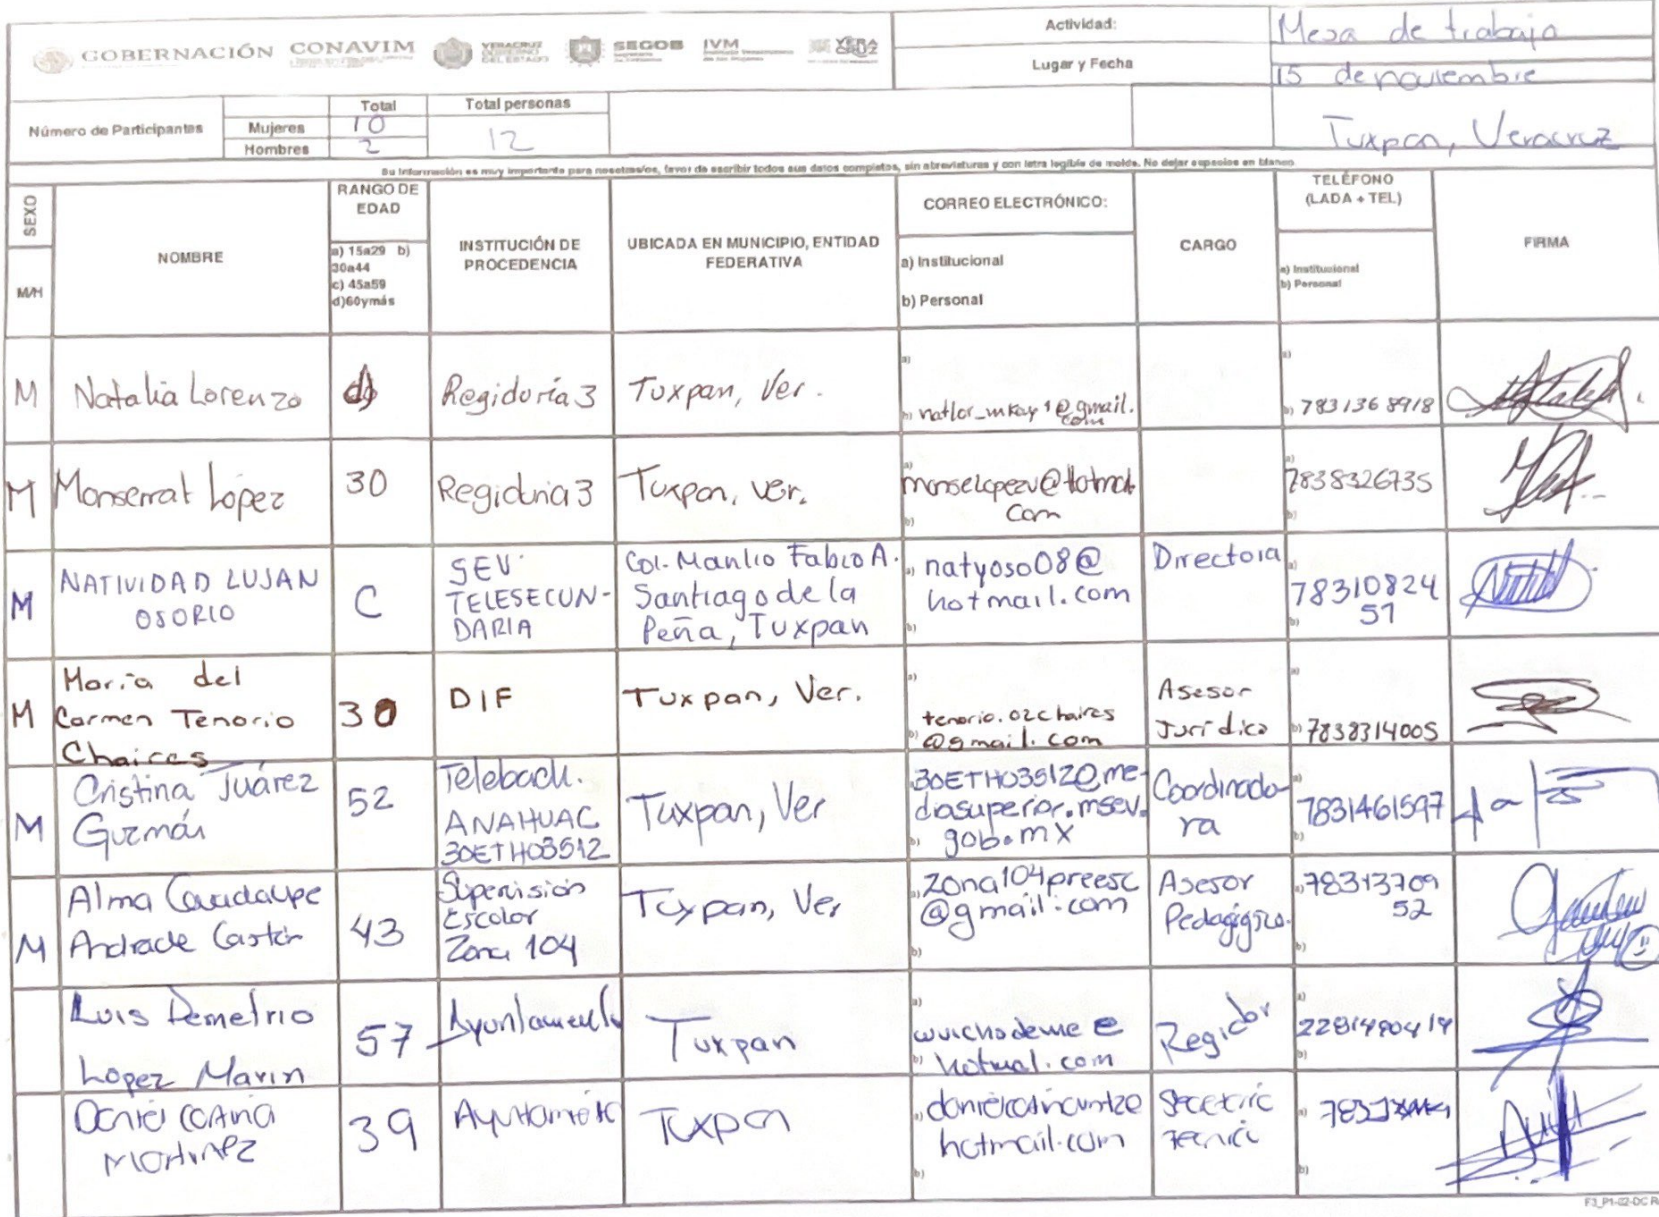 GOBERNACIÓN CONAVIM VERACRUZ GOBIERNO DEL ESTADO SEGOB IVM
Actividad: Mesa de trabajo
Lugar y Fecha 15 de noviembre
Tuxpan, Veracruz
Número de Participantes
Total Total personas
Mujeres 10
Hombres 2
12
Su información es muy importante para nosotras/os, favor de escribir todos sus datos completos, sin abreviaturas y con letra legible de molde. No dejar espacios en blanco
SEXO
M/H
NOMBRE
RANGO DE
EDAD
a) 15a29 b)
30a44
c) 45a59
d)60ymás
INSTITUCIÓN DE
PROCEDENCIA
UBICADA EN MUNICIPIO, ENTIDAD
FEDERATIVA
CORREO ELECTRÓNICO:
a) Institucional
b) Personal
CARGO
TELÉFONO
(LADA + TEL)
a) Institucional
b) Personal
FIRMA
M Natalia Lorenzo
d)
Regiduría 3
Tuxpan, Ver.
a)
b)
@gmail.
com
a)
b) 7831368918
M Monserrat López
30
Regiduria 3
Tuxpan, ver.
a)
monselopezv@Hotmail
com
b)
a)
7838326735
b)
M NATIVIDAD LUJAN
OSORIO
C
SEV
TELESECUN-
DARIA
Col. Manlio Fabio A.
Santiago de la
Peña, Tuxpan
a) natyoso08@
hotmail.com
b)
Directora
a)
78310824
51
b)
M María del
Carmen Tenorio
Chaires
30
DIF
Tuxpan, Ver.
a)
tenorio.02chaires
b) @gmail.com
Asesor
Jurídico
a)
b) 7838314005
M Cristina Juárez
Guzmán
52
Telebach.
ANAHUAC
30ETH03512
Tuxpan, Ver
30ETH03512@me-
diasuperior.msev.
b) gob.mx
Coordinado-
ra
a)
7831461597
b)
M Alma Guadalupe
Andrade Castán
43
Supervisión
Escolar
Zona 104
Tuxpan, Ver
a) zona104preesc
@gmail.com
b)
Asesor
Pedagógico.
a) 78313709
52
b)
Luis Demetrio
Lopez Marin
57
Ayuntamiento
Tuxpan
a)
wuichodeme@
b) hotmail.com
Regidor
a)
2281490419
b)
Daniel
Martinez
39
Ayuntamiento
Tuxpan
a)
hotmail.com
b)
Secretario
Tecnico
a)
b)